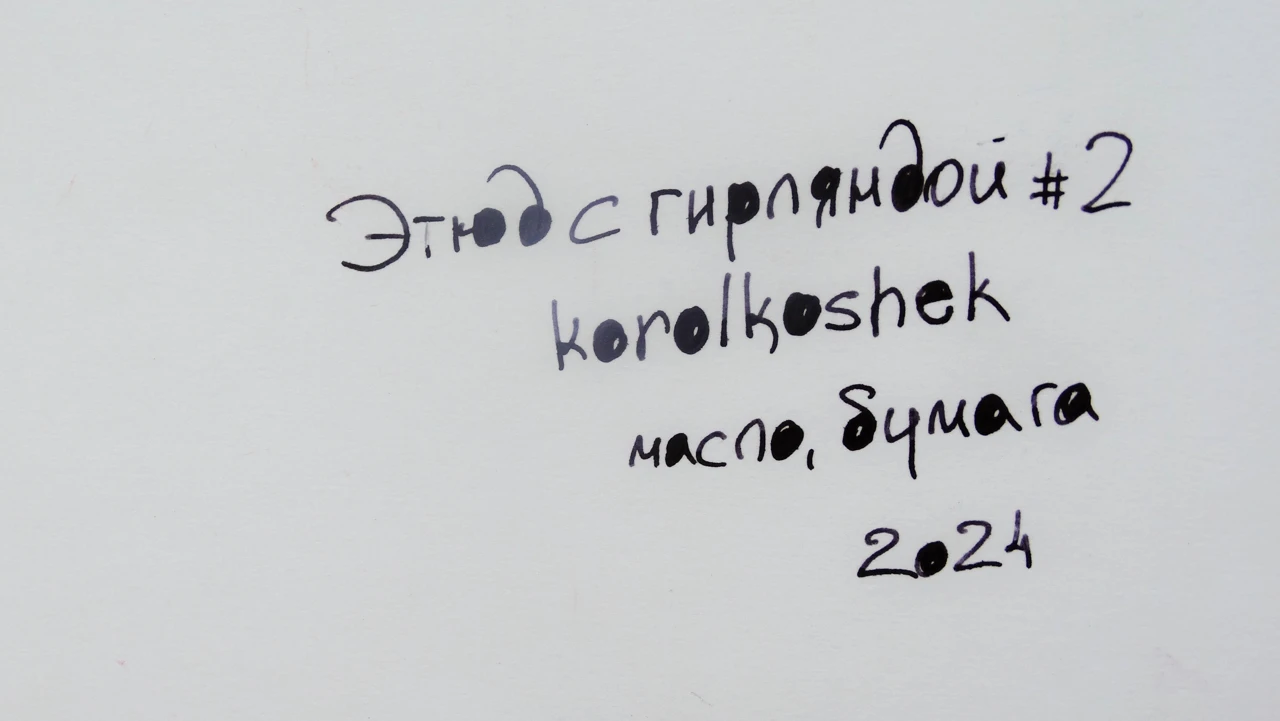 Этюд с гирляндой #2
korolkoshek
масло, бумага
2024